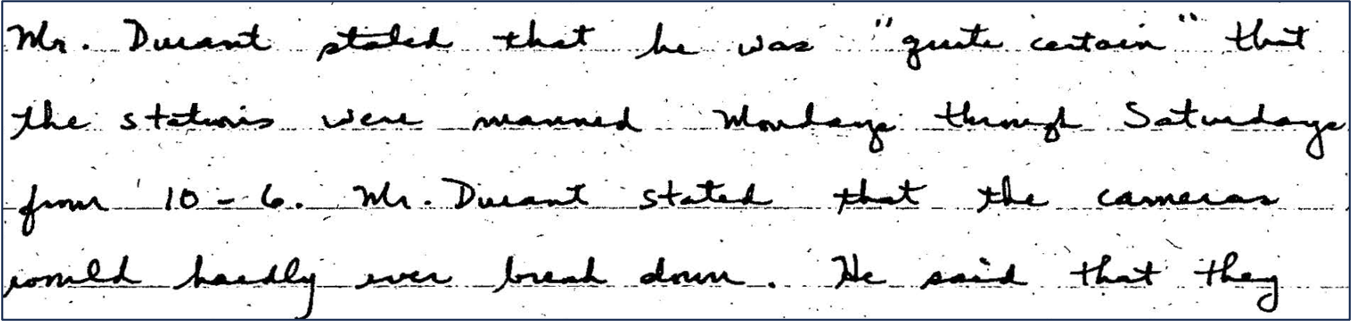 Mr. Durant stated that he was "quite certain" that
the stations were manned Mondays through Saturdays
from 10-6. Mr. Durant stated that the cameras
would hardly ever break down. He said that they